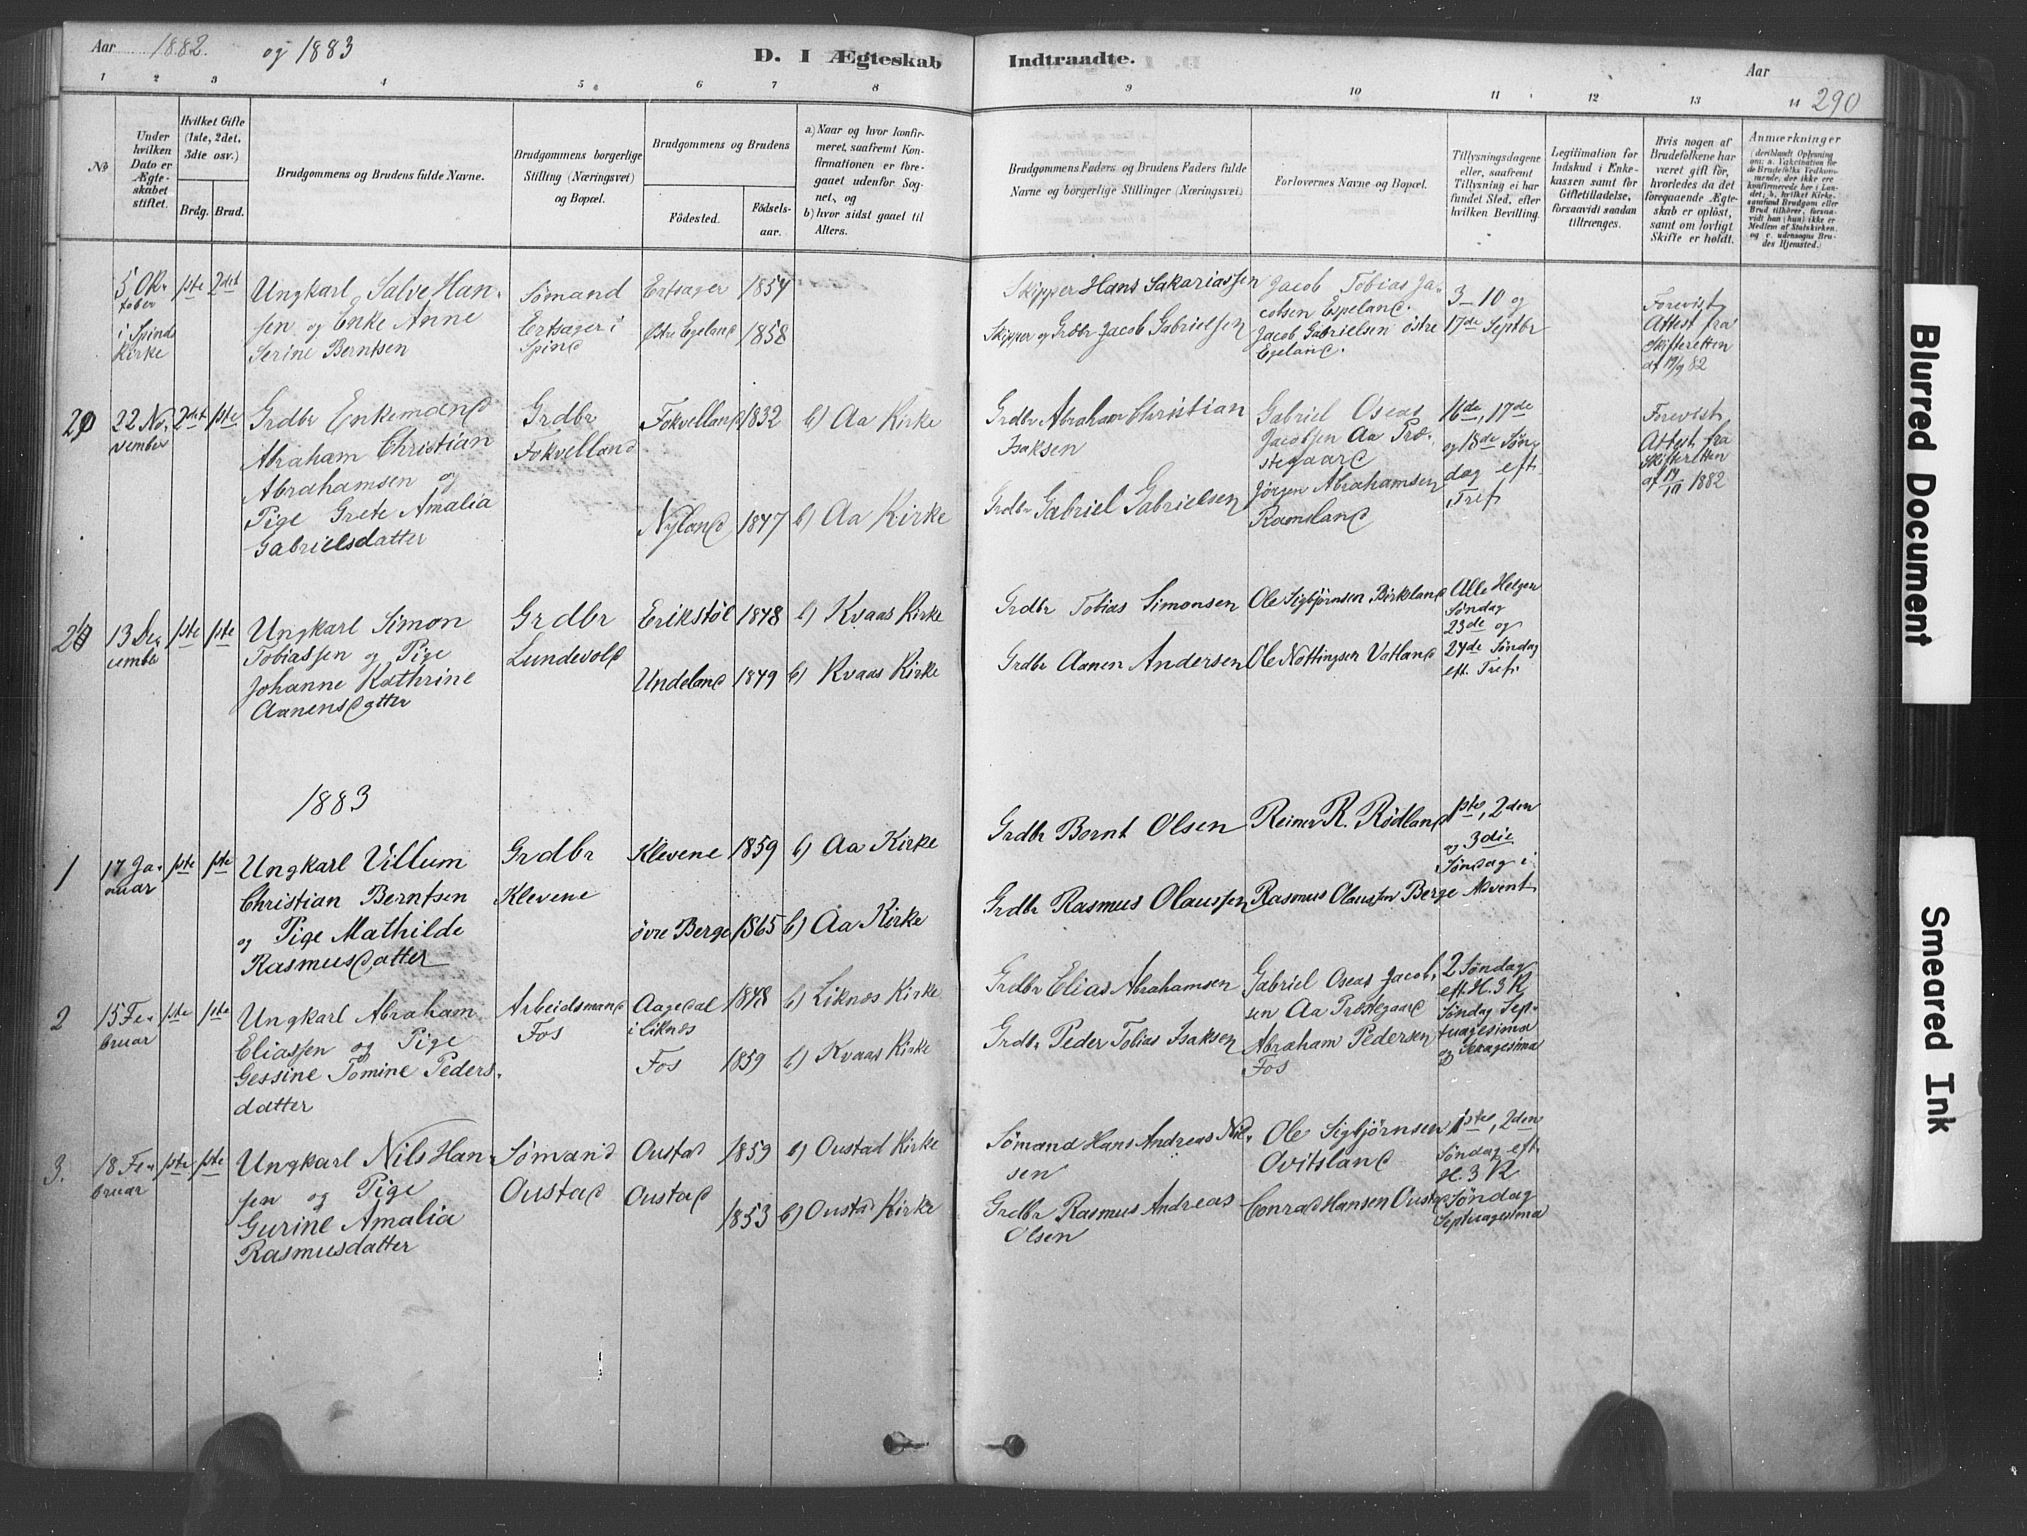 Aar 1882. og 1883
D. I Ægteskab Indtraadte.
Aar
290
1 2 3 4 5 6 7 8 9 10 11 12 13 14
No
Under hvilken Dato er Ægteskabet stiftet.
Hvilket Gifte (1ste, 2det, 3die osv.)
Brdg. Brud.
Brudgommens og Brudens fulde Navne.
Brudgommens borgerlige Stilling (Næringsvei) og Bopæl.
Brudgommens og Brudens
Fødested.
Fødselsaar.
a) Naar og hvor konfirmeret, saafremt Konfirmationen er foregaaet udenfor Sognet, og
b) hvor sidst gaaet til Alters.
Brudgommens Faders og Brudens Faders fulde Navne og borgerlige Stillinger (Næringsvei)
Forlovernes Navne og Bopæl.
Tillysningsdagene eller, saafremt Tillysning ei har fundet Sted, efter hvilken Bevilling.
Legitimation for Indskud i Enkekassen samt for Giftetilladelse, forsaavidt saadan tiltrænges.
Hvis nogen af Brudefolkene har været gift før, hvorledes da det foregaaende Ægteskab er opløst, samt om lovligt Skifte er holdt.
Anmærkninger
5 Oktober
i Spind
Kirke
1ste 2det
Ungkarl Salve Han-
sen og Enke Anne
Serine Berntsen
Sømand
Ertsager i
Spind
Ertsager 1857
Østre Egeland 1858
Skipper Hans Sakariassen
Skipper og Grdbr Jacob Gabrielsen
Jacob Tobias Ja-
cobsen Espeland.
Jacob Gabrielsen østre
Egeland.
3-10 og
17de Septbr
Forevist
Attest fra
Skifteretten
af 19/9 82
20
22 No-
vember
2det 1ste
Grdbr Enkemand
Abraham Christian
Abrahamsen og
Pige Grete Amalia
Gabrielsdatter
Grdbr
Fokvelland
Fokvelland 1832 b) Aa Kirke
Nyland 1847 b) Aa Kirke
Grdbr Abraham Christian
Isaksen
Grdbr Gabriel Gabrielsen
Gabriel Oseas
Jacobsen Aa Præ-
stegaard
Jørgen Abrahamsen
Ramsland
16de, 17de
og 18de Søn-
dag eft.
Tref.
Forevist
Attest fra
Skifteretten
af 17/10 1882
13 De-
cember
1ste 1ste
Ungkarl Simon
Tobiassen og Pige
Johanne Kathrine
Aanensdatter
Grdbr
Lundevold
Erikstøl 1848 b) Kvaas Kirke
Undeland 1849 b) Kvaas Kirke
Grdbr Tobias Simonsen
Grdbr Aanen Andersen
Ole Sigbjørnsen Birkeland
Ole Nottingsen Vatland
Alle Helgen
Søndag
23de og
24de Søndag
eft. Tref.
1883
1
17 Ja-
nuar
1ste 1ste
Ungkarl Villum
Christian Berntsen
og Pige Mathilde
Rasmusdatter
Grdbr
Klevene
Klevene 1859 b) Aa Kirke
øvre Berge 1865 b) Aa Kirke
Grdbr Bernt Olsen
Grdbr Rasmus Olaussen
Reiner R. Rødland
Rasmus Olaussen Berge
1ste, 2den
og 3die
Søndag i
Advent
2
15 Fe-
bruar
1ste 1ste
Ungkarl Abraham
Eliassen og Pige
Gessine Tomine Peders-
datter
Arbeidsmand
Fos
Aagedal
i Liknes
1848 b) Liknes Kirke
Fos 1859 b) Kvaas Kirke
Grdbr Elias Abrahamsen
Grdbr Peder Tobias Isaksen
Gabriel Oseas Jacob-
sen Aa Præstegaard
Abraham Pedersen
Fos
2 Søndag
eft. H. 3 K
Søndag Sep-
tuagesima
og Sexagesima
3.
18 Fe-
bruar
1ste 1ste
Ungkarl Nils Han-
sen og Pige
Gurine Amalia
Rasmusdatter
Sømand
Oustad
Oustad 1859 b) Oustad Kirke
Oustad 1853 b) Oustad Kirke
Sømand Hans Andreas Nil-
sen
Grdbr Rasmus Andreas
Olsen
Ole Sigbjørnsen
Ovitsland
Conrad Hansen Oustad
1ste, 2den
Søndag eft.
H. 3 K
Søndag
Septuagesima
Blurred Document
Smeared Ink